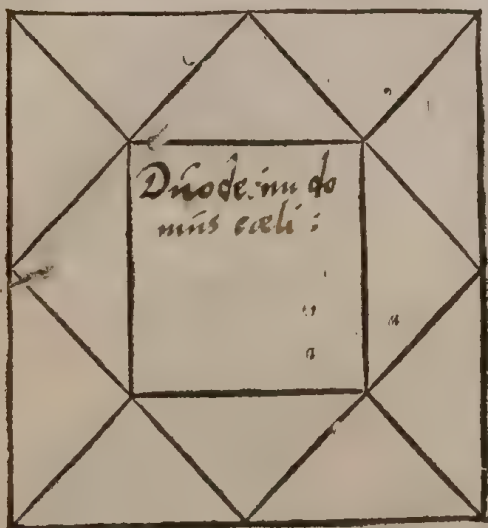 Duodecim do
mus cæli: